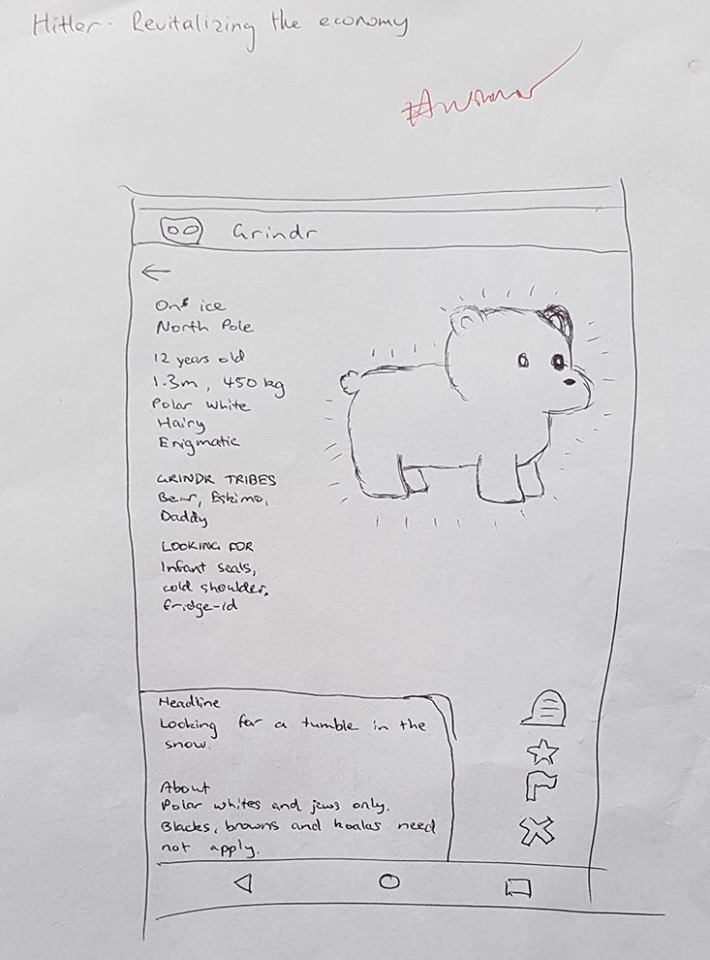 Hitler: Revitalizing the economy
Grindr
On ice
North Pole
12 years old
1.3m, 450 kg
Polar White
Hairy
Enigmatic
GRINDR TRIBES
Bear, Eskimo,
Daddy
LOOKING FOR
Infant seals,
cold shoulder,
fridge-id
Headline
Looking for a tumble in the
snow.
About
Polar whites and jews only.
Blacks, browns and koalas need
not apply.